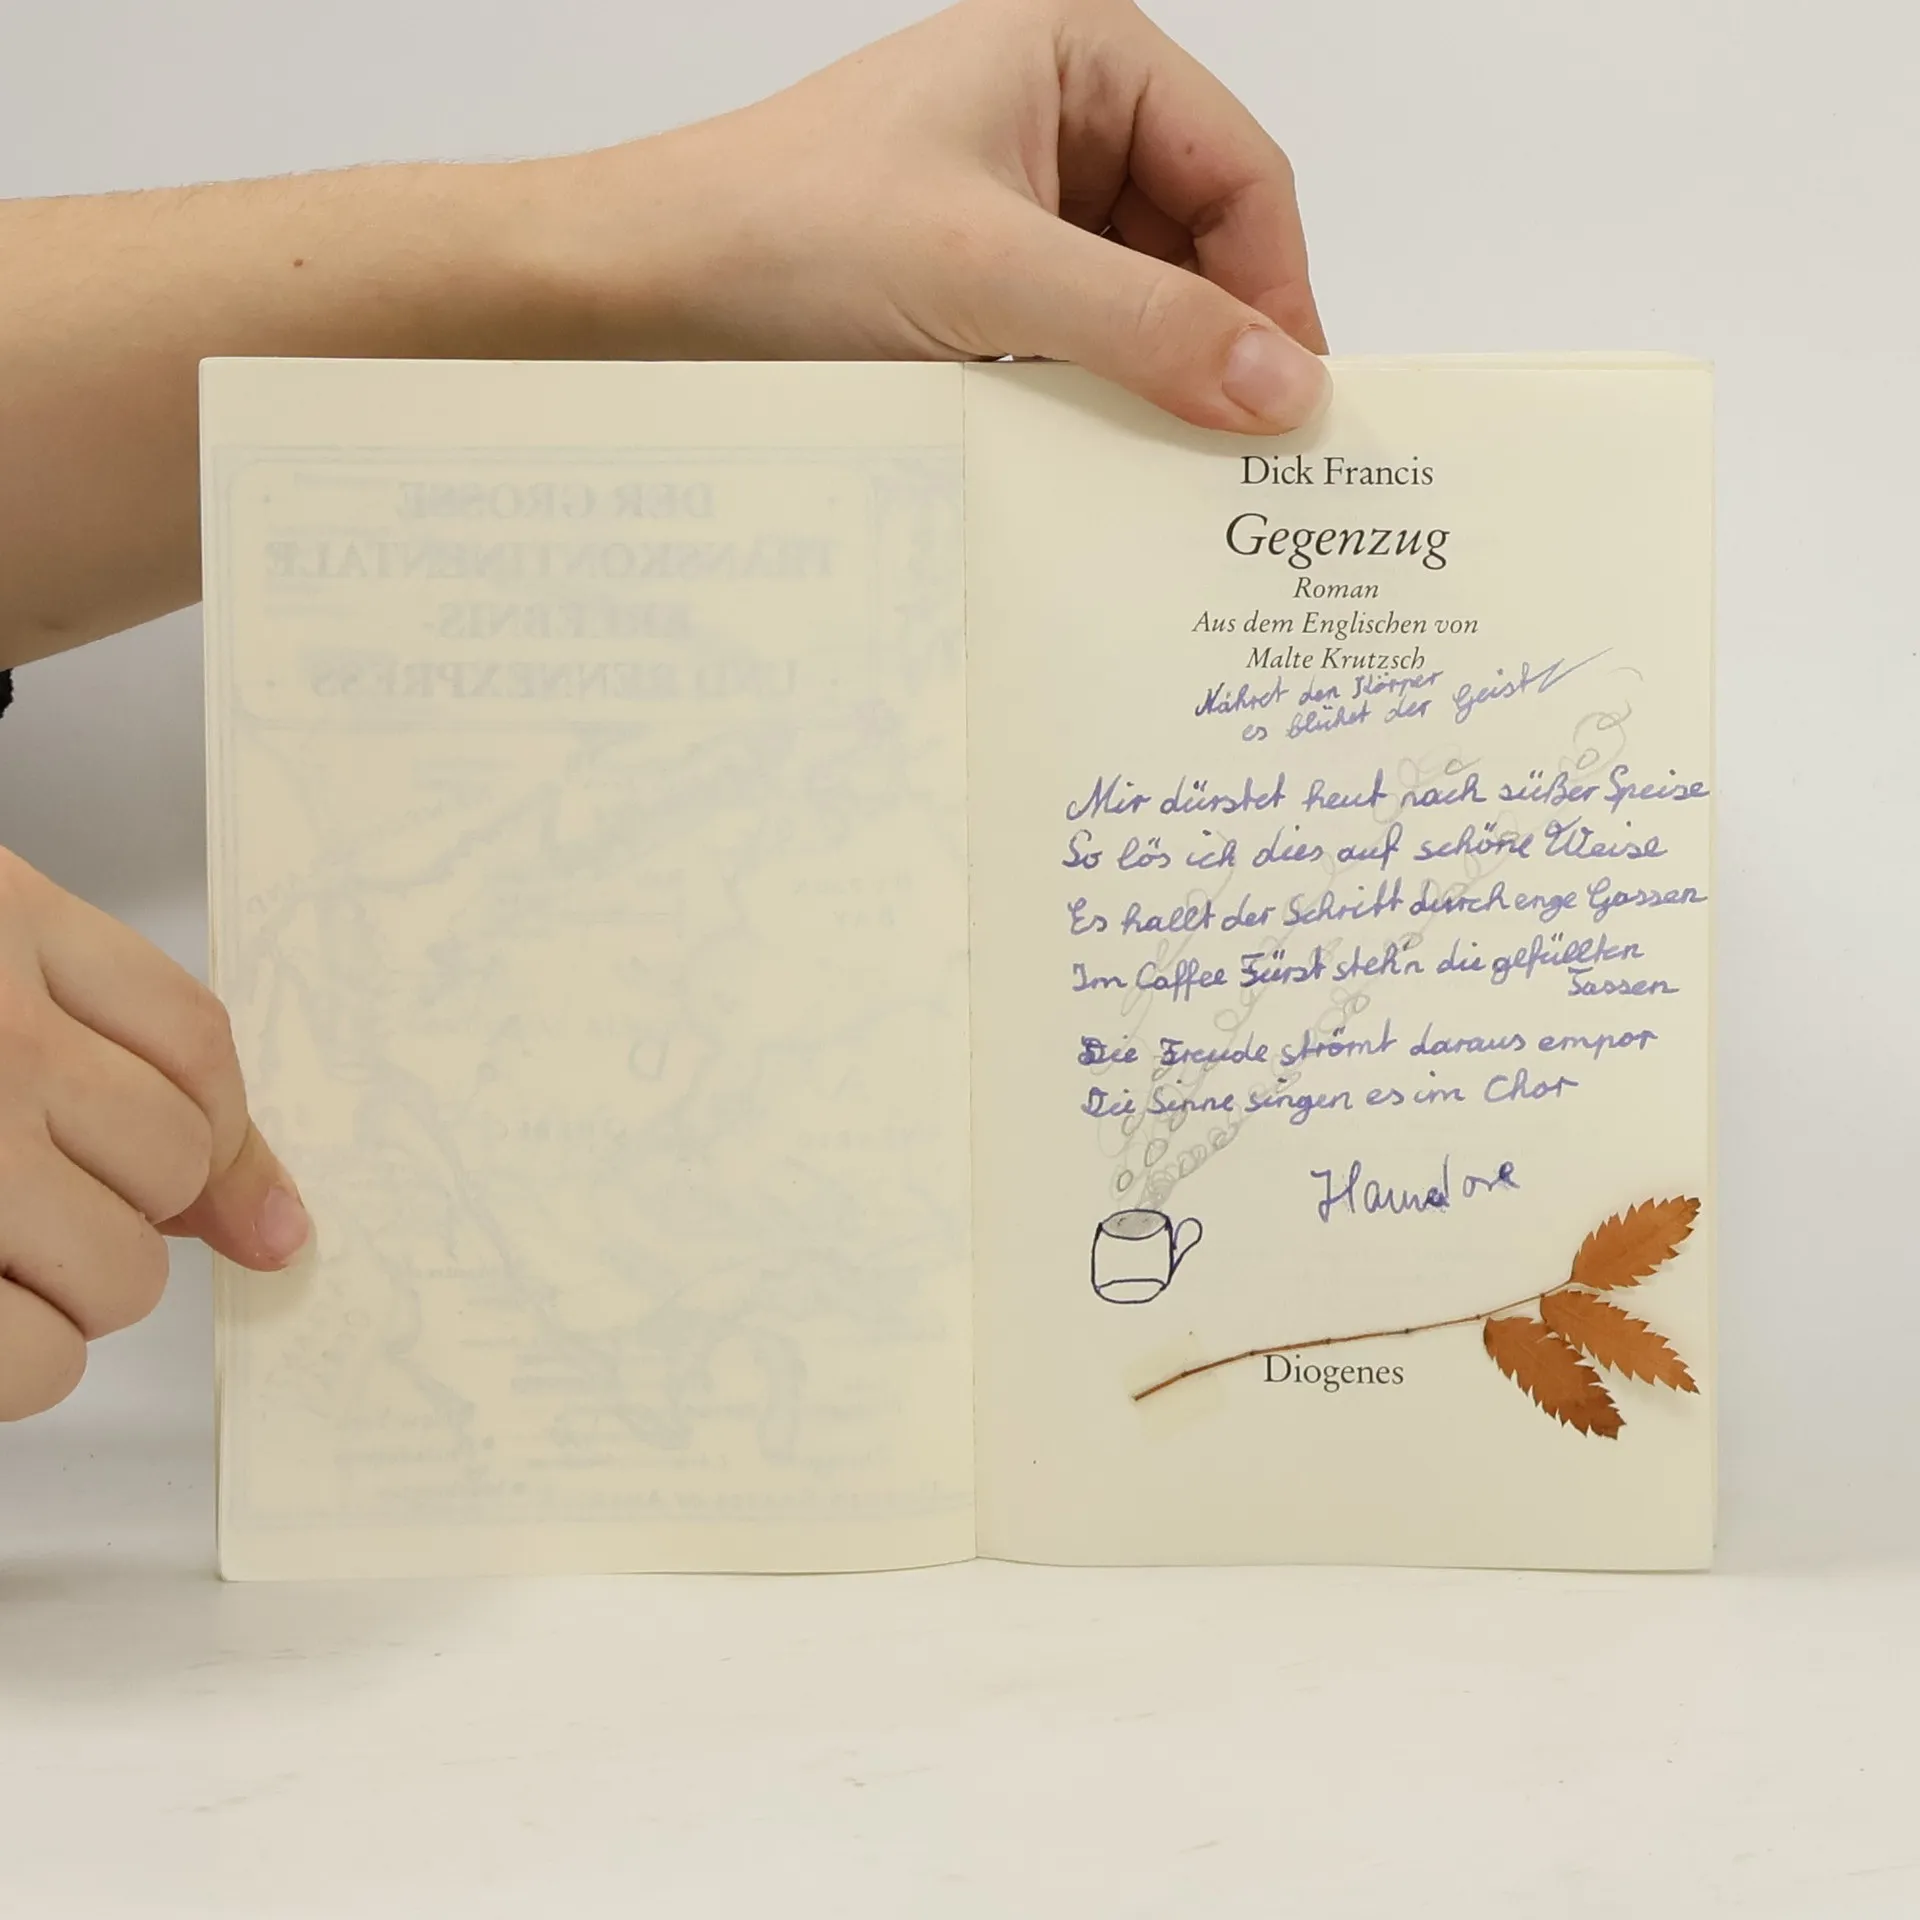 DER GROSSE
TRANSKONTINENTALE
ERLEBNIS-
UND RENNEXPRESS
Dick Francis
Gegenzug
Roman
Aus dem Englischen von
Malte Krutzsch
Nähret den Körper
es blühet der Geist
Mir dürstet heut nach süßer Speise
So lös ich dies auf schöne Weise
Es hallt der Schritt durch enge Gassen
Im Caffee Fürst steh'n die gefüllten
Tassen
Die Freude strömt daraus empor
Die Sinne singen es im Chor
Diogenes